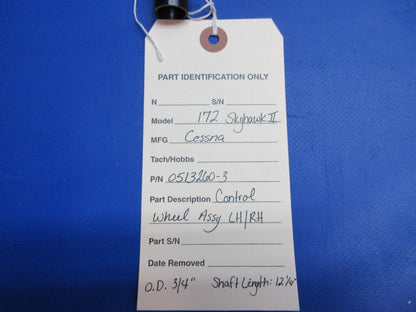 PART IDENTIFICATION ONLY
N S/N
Model 172 Skyhawk II
MFG Cessna
Tach/Hobbs
P/N 0513260-3
Part Description Control
Wheel Assy LH/RH
Part S/N
Date Removed
O.D. 3/4" Shaft Length: 12 1/4"